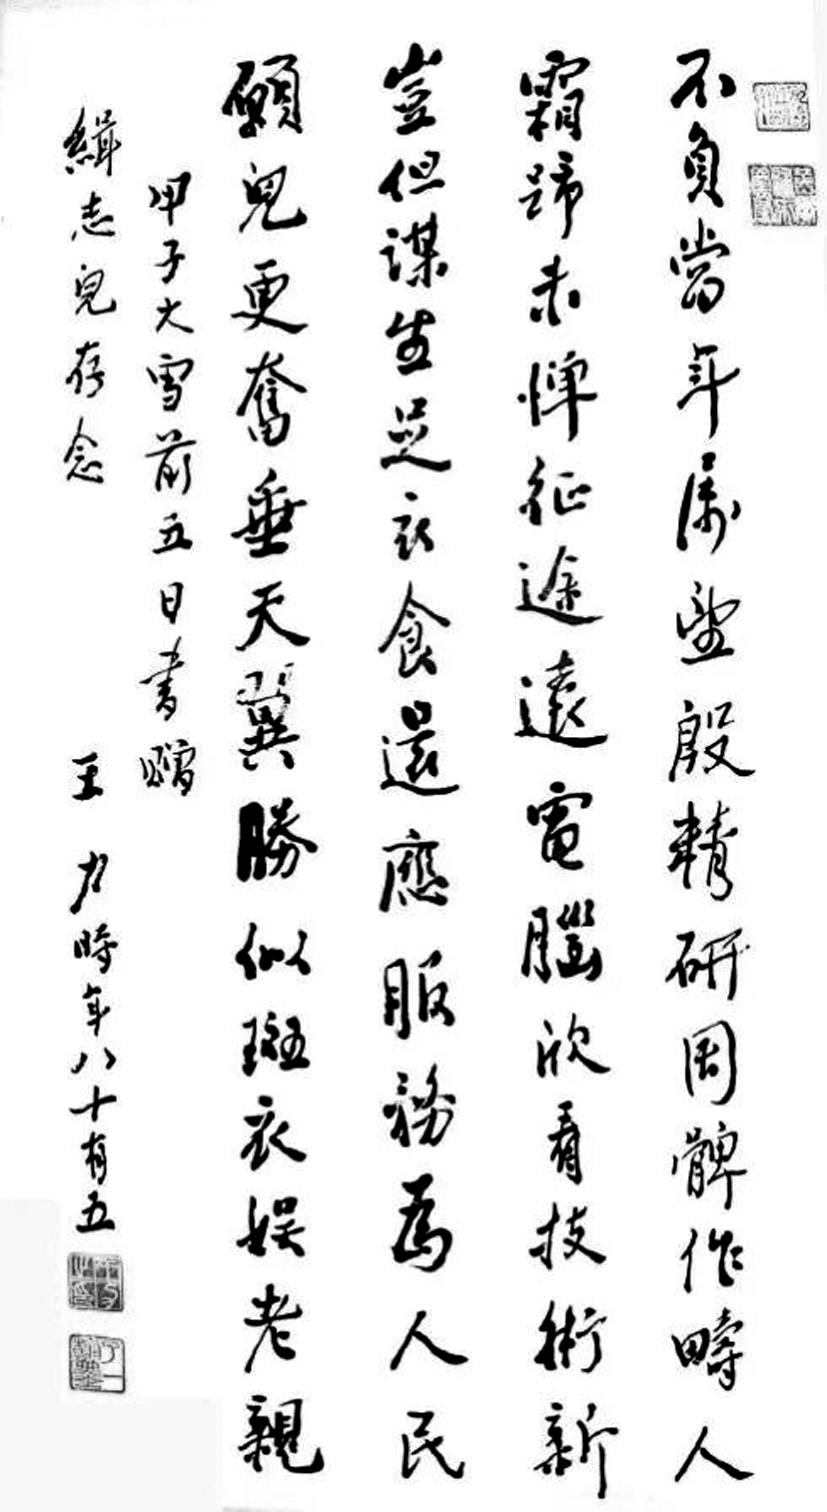 不負當年屬望殷精研周髀作疇人
霜蹄未憚征途遠電腦欣看技術新
豈但謀生足衣食還應服務為人民
願兒更奮垂天翼勝似斑衣娛老親
甲子大雪前五日書贈
緝志兒存念
王力時年八十有五